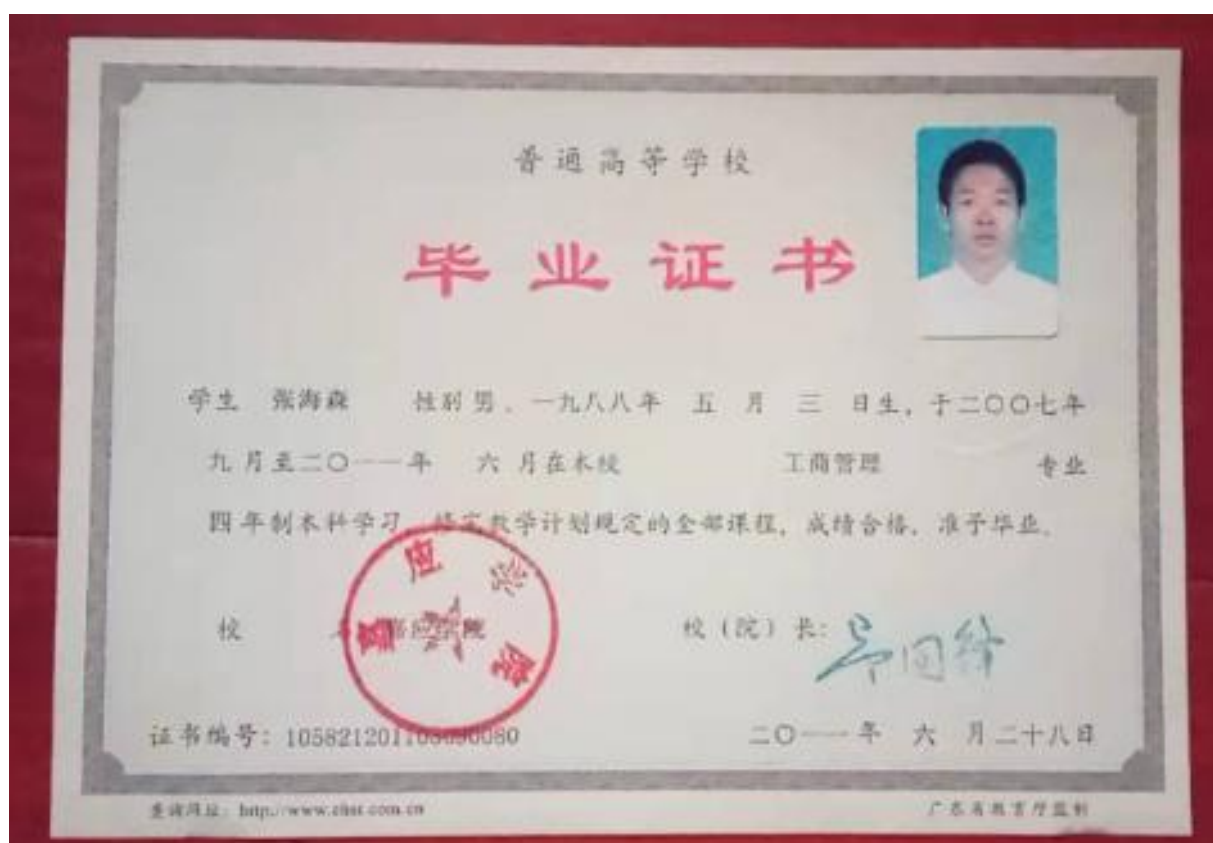 普通高等学校
毕业证书
学生 张海森 性别 男，一九八八年 五 月 三 日生，于二〇〇七年
九 月至二〇一一年 六 月在本校 工商管理 专业
四 年制本科学习，修完教学计划规定的全部课程，成绩合格，准予毕业。
校 名 嘉应学院
嘉应学院
校（院）长：
证书编号：105821201105
二〇一一年 六 月二十八日
查询网址：http://www.chsi.com.cn
广东省教育厅监制